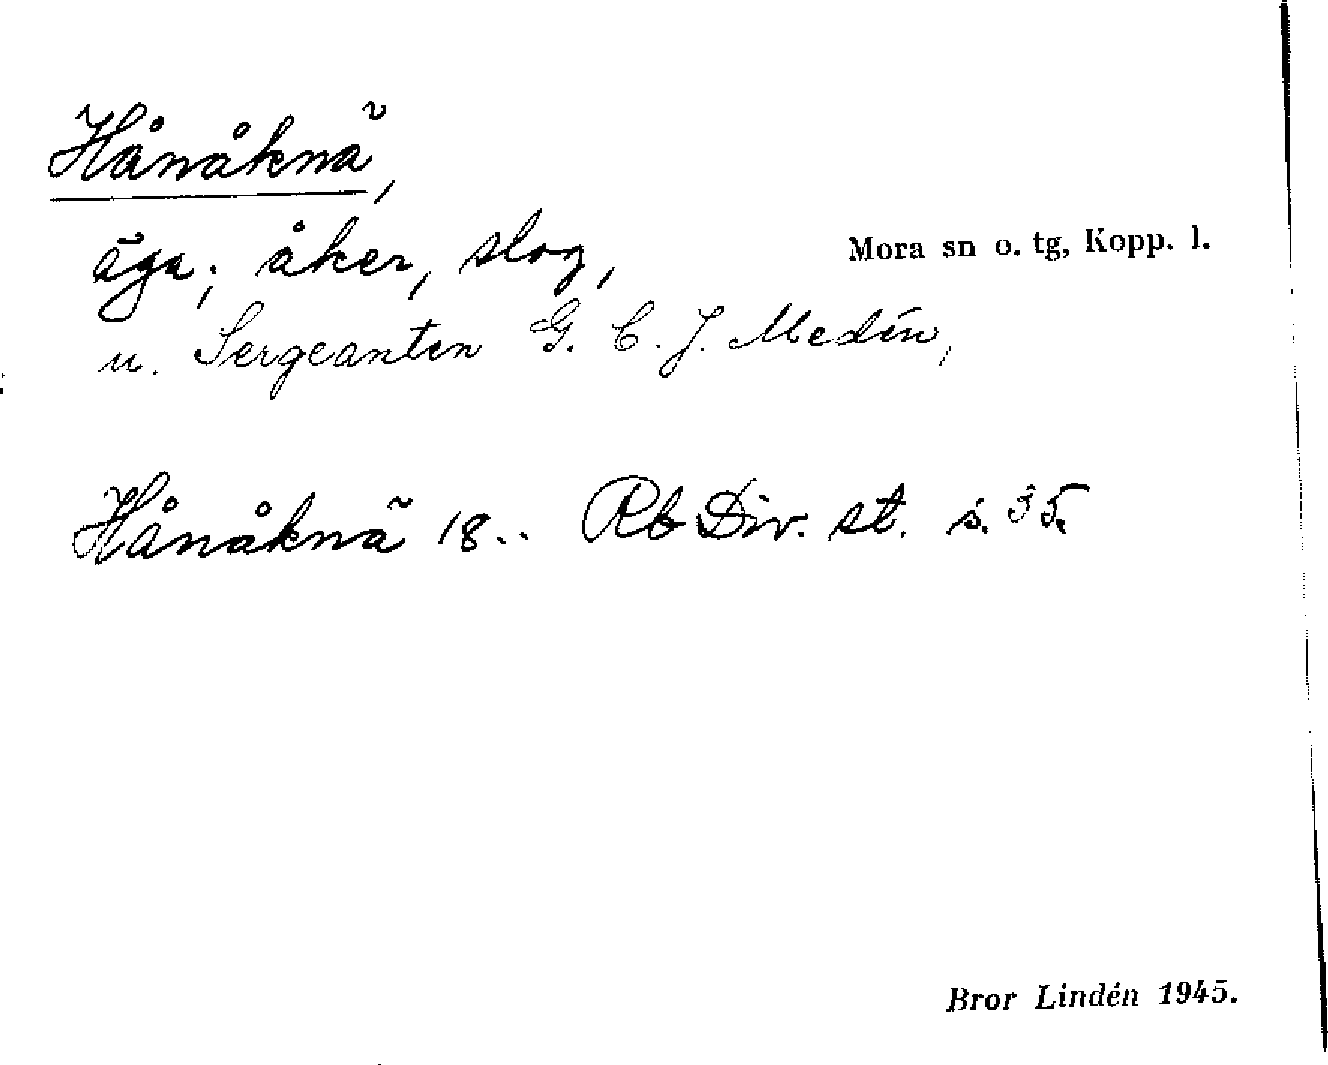 Hånåknä,
äga; åker, slog,
Mora sn o. tg, Kopp. l.
u. Sergeanten G. C. J. Medin,
Hånåknä 18.. Rb Div. st. s. 35.
Bror Lindén 1945.